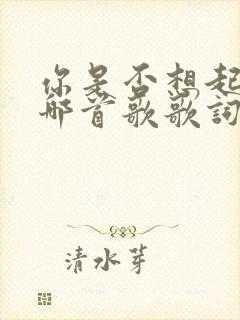 你是否想起
那首歌歌詞
清水芽